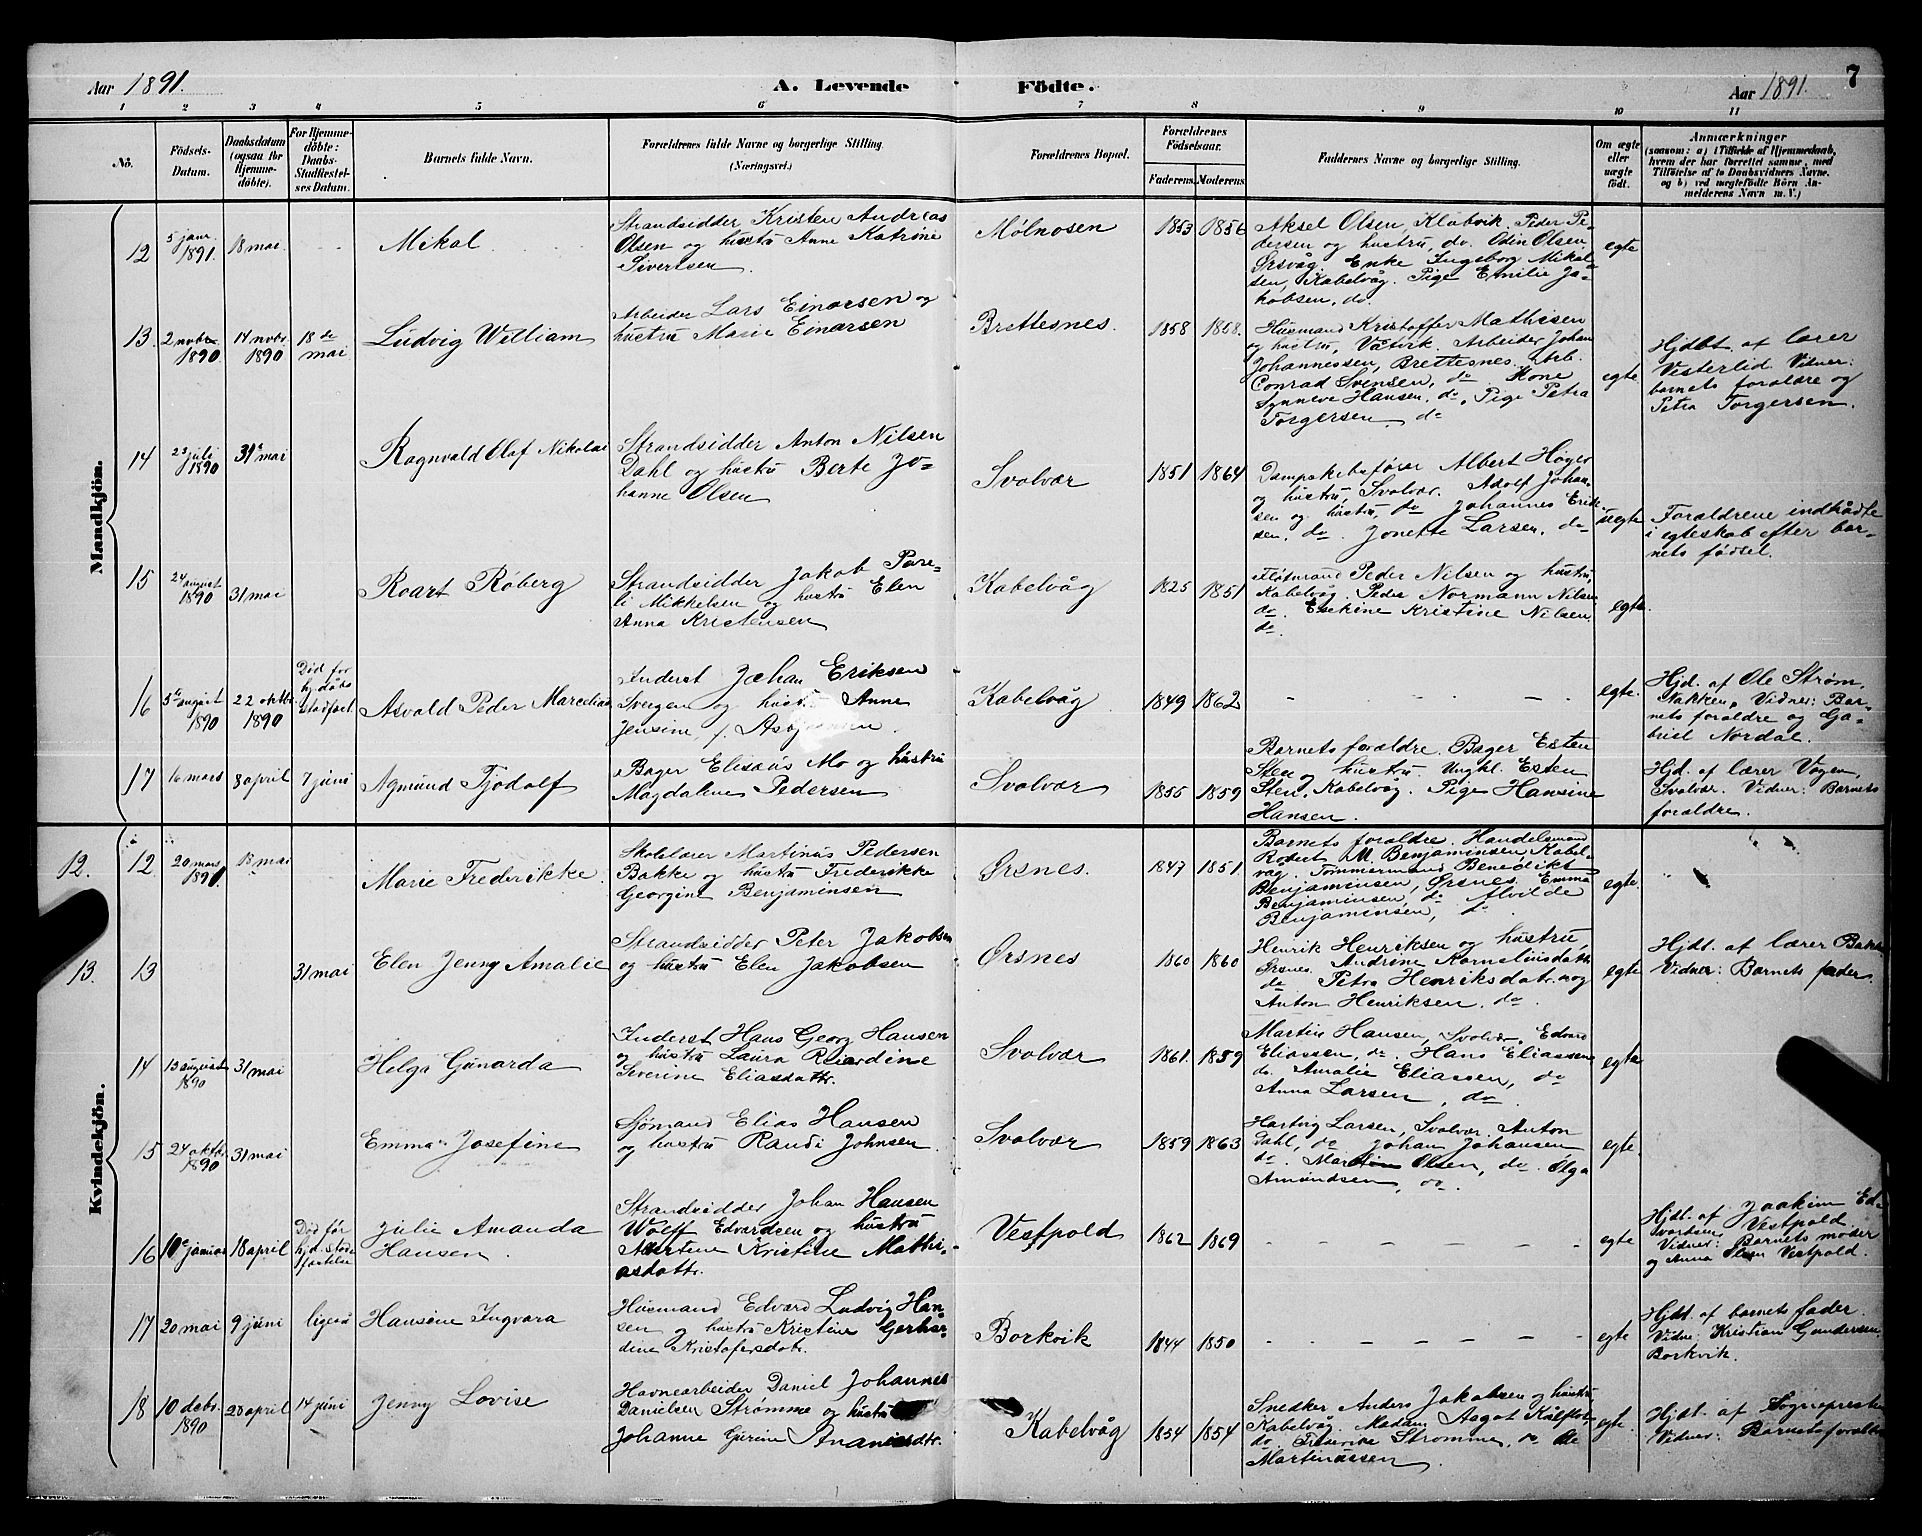 Aar 1891. A. Levende Födte. Aar 1891. 7
1 2 3 4 5 6 7 8 9 10 11
No. Födsels-Datum. Daabsdatum (ogsaa for Hjemme-döbte). For Hjemme-döbte: Daabs-Stadfæstel-ses Datum. Barnets fulde Navn. Forældrenes fulde Navne og borgerlige Stilling. (Næringsvei.) Forældrenes Bopæl. Forældrenes Födselsaar. Faderens. Moderens. Faddernes Navne og borgerlige Stilling. Om ægte eller uægte födt. Anmærkninger (saasom: a) i Tilfælde af Hjemmedaab, hvem der har forrettet samme, med Tilföielse af to Daabsvidners Navne, og b) ved uægtefödte Börn An-melderens Navn m. V.)
Mandkjön.
12 5 janr 1891. 18 mai - - Mikal
Strandsidder Kristen Andreas
Olsen og hustru Anne Katrine
Sivertsen
Mølnosen 1853 1856
Aksel Olsen, Kløbvik. Peder Pe-
dersen og hustru, do. Odin Olsen,
Ørsvåg. Enke Ingeborg Mikal-
sen, Kabelvåg. Pige Emilie Ja-
kobsen, do.
egte
13. 2 nvbr 1890. 14 nvbr. 1890 18de mai Ludvig William
Arbeider Lars Einarsen og
hustru Marie Einarsen
Brettesnes. 1858 1858.
Husmand Kristoffer Mathisen
og hustru, Våtvik. Arbeider Johan
Johannessen, Brettesnes. Arb.
Conrad Svensen, do Kone
Synneve Hansen, do. Pige Petra
Torgersen do
egte
Hjdbt. af lærer
Vesterlid. Vidner:
barnets forældre og
Petra Torgersen.
14 23 juli 1890 31te mai Ragnvald Olaf Nikolai
Strandsidder Anton Nilsen
Dahl og hustru Berte Jo-
hanne Olsen
Svolvær 1851 1864
Dampskibsfører Albert Høyer
og hustru, Svolvær. Adolf Johan-
sen og hustru, do Johannes Erik-
sen, do. Jonette Larsen, do
uegte
Foraldrene indtrådte
i egteskab efter bar-
nets fødsel.
15 24 august 1890 31 mai Roart Røberg
Strandsidder Jakob Pare-
li Mikkelsen og hustru Elen
Anna Kristensen
Kabelvåg 1825 1851
Fløtmand Peder Nilsen og hustru,
Kabelvåg. Peder Normann Nilsen
do. Erekine Kristine Nilsen
do.
egte.
16 5te august 1890 22 oktbr. 1890 Død før hj.dåbs stadfæst. Asvald Peder Marcelius
Inderst Johan Eriksen
Svergen og hustru Anne
Jensine, f. Asbjørnsen.
Kabelvåg 1849 1862 - - - -
egte.
Hjd. af Ole Strøm,
Nakken. Vidner: Bar-
nets foraldre og Ga-
briel Nordal.
17 16 mars 3 april 7 juni Agmund Tjodolf
Bager Elisæus Mo og hustru
Magdalene Pedersen
Svolvær 1855 1859
Barnets foraldre. Bager Esten
Sten og hustru. Ungkl. Esten
Sten, Kabelvåg. Pige Hansine
Hansen.
Hjd. af lærer Vågen,
Svolvær. Vidner: Barnets
foraldre.
Kvindekjön.
12. 12 20 mars 1891. 18 mai Marie Frederikke
Skolelærer Martinus Pedersen
Bakke og hustru Frederikke
Georgine Benjaminsen
Ørsnes. 1847 1851
Barnets foraldre. Handelsmand
Robert M. Benjaminsen, Kabel-
våg. Tømmermand Benedikt
Benjaminsen, Ørsnes. Emma
Benjaminsen, do Alvilde
Benjaminsen, do
egte.
13. 13 31 mai Elen Jenny Amalie
Strandsidder Peter Jakobsen
og hustru Elen Jakobsen
Ørsnes 1860 1860
Henrik Henriksen og hustru,
Ørsnes. Andrine Korneliusdatr.
do Petra Henriksdatr. og
Anton Henriksen, do.
egte
Hjdt. af lærer Bakke
Vidner: Barnets fader.
14 13 august 1890 31 mai Helga Gunarda
Inderst Hans Georg Hansen
og hustru Laura Ricardine
Severine Eliasdatr.
Svolvær 1861. 1859
Martin Hansen, Svolvær. Edvard
Eliassen, do. Hans Eliassen
do. Amalie Eliassen, do
Anna Larsen, do.
egte
15 24 oktbr. 1890 31 mai Emma Josefine
Sømand Elias Hansen
og hustru Randi Johnsen.
Svolvær 1859 1863
Hartvig Larsen, Svolvær. Anton
Dahl, do Johan Johansen
do. Martine Olsen, do. Olga
Amundsen, do.
egte
16 10e januar 18 april Død før hj.d. stad-fæstelse Julie Amanda Hansen.
Strandsidder Johan Hansen
Wolff Edvardsen og hustru
Martine Kristine Mathi-
asdatr.
Vestpold 1862 1869 - - - - -
egte
Hjdt. af Joakim Ed-
vardsen, Vestpold
Vidner: Barnets moder
og Anna Olsen Vestpold.
17 20 mai 9 juni ligeså Hansine Ingvara
Husmand Edvard Ludvig Han-
sen og hustru Kristine Gerhar-
dine Kristofersdatr.
Borkvik 1844 1850 - - - - -
egte
Hjdt. af barnets fader.
Vidne: Kristian Gundersen,
Borkvik.
18 10 debr. 1890 20 april 14 juni Jenny Lovise
Havnearbeider Daniel Johannes
Danielsen Strømme og hustru
Johanne Gurine Ananiasdtr.
Kabelvåg 1854 1854
Snedker Anders Jakobsen og hustru
Kabelvåg. Madam Aagot Kalfløt,
do. Frederike Strømme, do Ole
Martinussen
egte
Hjdt. af Sognepresten
Vidner: Barnets foraldre